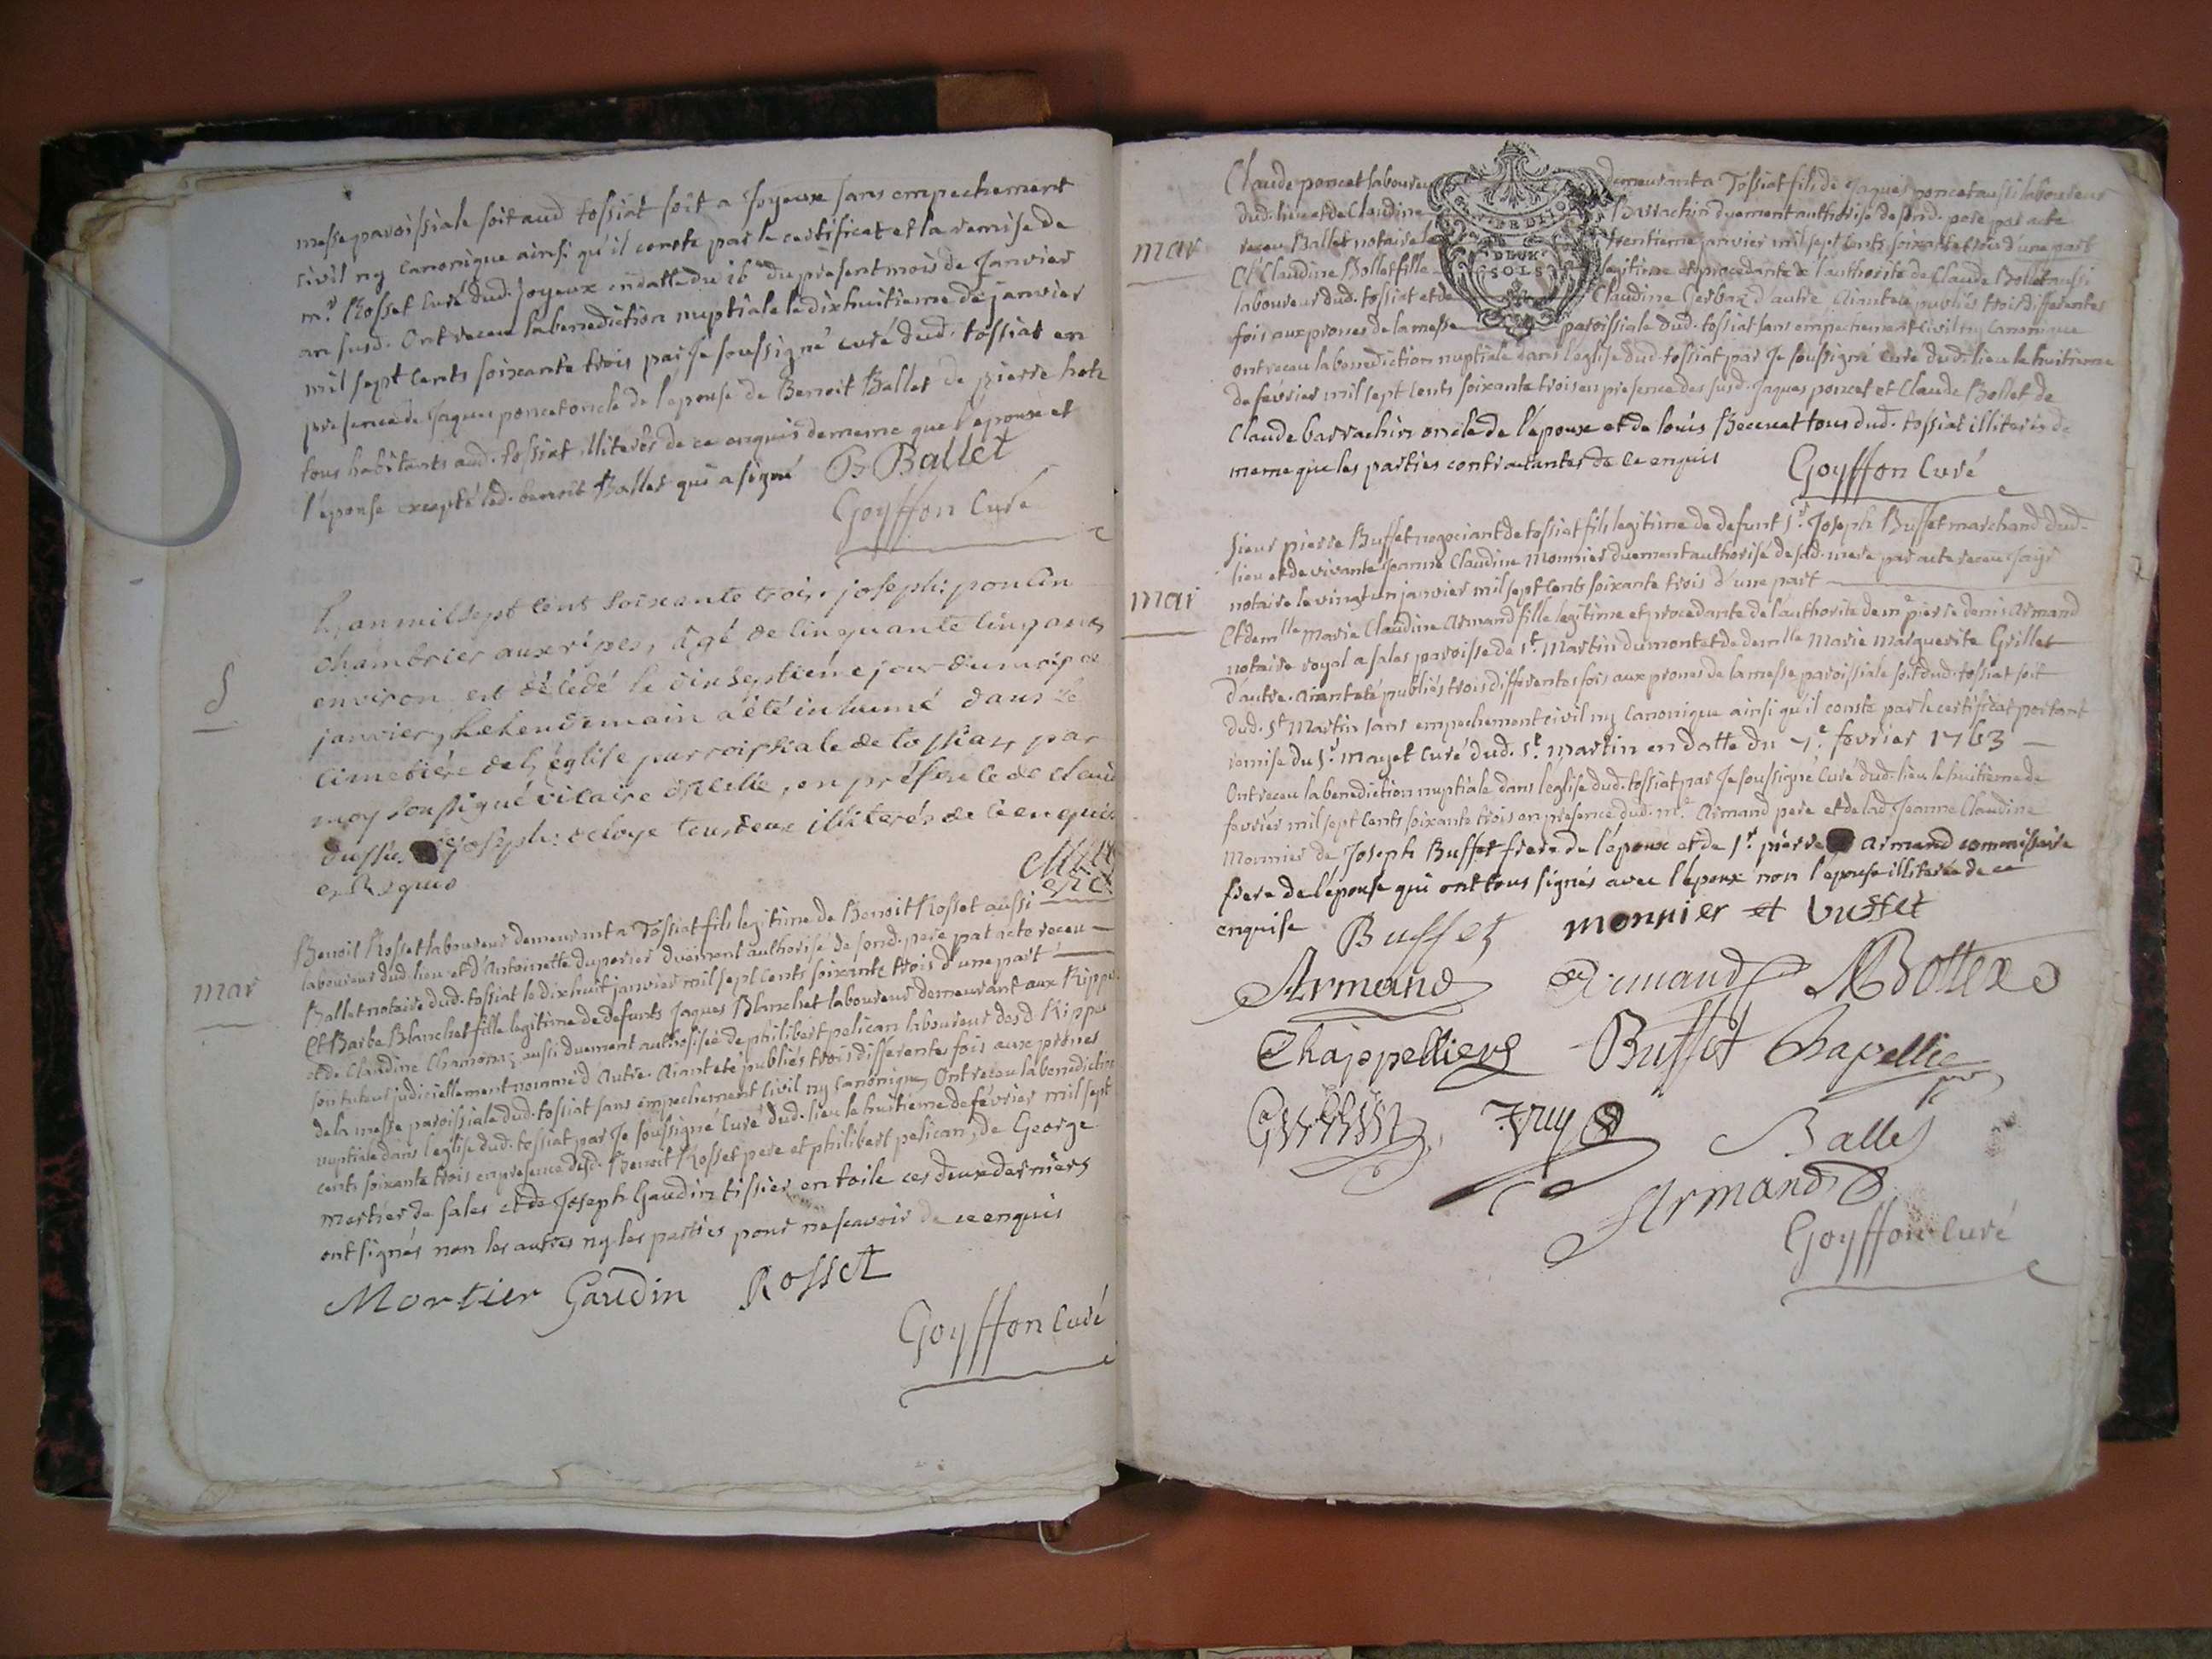 messe paroissiale soit aud tossiat soit a Joyeux sans empechement
civil ny canonique ainsi qu'il conste par le certificat et la remise de
mr. Rosset curé dud. Joyeux en datte du 16e du present mois de Janvier
an susd. Ont receu la benediction nuptiale le dixhuitieme de janvier
mil sept cents soixante trois par Je soussigné curé dud. tossiat en
presence de Jaques poncet oncle de l'epouse de Benoit Ballet de pierre
tous habitants aud. tossiat illiterés de ce enquis de meme que l'epoux et
l'epouse excepté led. benoit Ballet qui a signé B Ballet
Goyffon Curé
L'an mil sept cent soixante trois. joseph: poncin
chambrier aux ripes, âgé de cinquante cinq ans
environ est décédé le dixseptieme jour du mois de
janvier, Le lendemain a été inhumé dans le
cimetiére de l'église parroissiale de tossiat, par
moy soussigné vicaire d'icelle, en présence de claude
joseph: tous deux illiterés de ce enquis
et Requis
mar
Benoit Rosset laboureur demeurant a Tossiat fils legitime de Benoit Rosset aussi
laboureur dud. lieu et d'Antoinette duperier duement authorisé de sond. pere par acte receu
Ballet notaire dud. tossiat le dixhuit janvier mil sept cents soixante trois d'une part
Et Barbe Blanchet fille legitime de defunts Jaques Blanchet laboureur demeurant aux Rippes
et de Claudine aussi duement authorisée de philibert pelican laboureur desd. Rippes
son tuteur judiciellement nommé d'Autre. Aiant eté publiés trois differentes fois aux prônes
de la messe paroissiale dud. tossiat sans empechement civil ny canonique, Ont receu la benediction
nuptiale dans l'eglise dud. tossiat par Je soussigné Curé dud. lieu le huitieme de février mil sept
cents soixante trois en presence desd. Benoit Rosset pere et philibert pelican, de George
mortier de sales et de Joseph Gaudin tissier en toile ces deux derniers
ont signés non les autres ny les parties pour ne scavoir de ce enquis
Mortier Gaudin Rosset
Goyffon Curé
mar
Claude poncet laboureur demeurant a Tossiat fils de Jaques poncet aussi laboureur
dud. lieu et de Claudine Barrachin duement authorisé de sond. pere par acte
receu Ballet notaire le trentieme janvier mil sept cents soixante trois d'une part
DEUX
SOLS
Et Claudine Bollet fille legitime et procedante de l'authorité de Claude Bollet aussi
laboureur dud. tossiat et de Claudine Gerbaz d'autre Aiant eté publiés trois differentes
fois aux prones de la messe paroissiale dud. tossiat sans empechement civil ny Canonique
ont receu la benediction nuptiale dans l'eglise dud. tossiat par Je soussigné Curé dud. lieu le huitieme
de février mil sept cents soixante trois en presence des susd. Jaques poncet et Claude Bollet de
Claude barrachin oncle de l'epoux et de louis tous dud. tossiat illiterés de
meme que les parties contractantes de ce enquis Goyffon Curé
mar
Sieur pierre Buffet negociant de tossiat fils legitime de defunt sr. Joseph Buffet marchand dud.
lieu et de vivante Jeanne Claudine Monnier duement authorisé de sad. mere par acte receu
notaire le vingt un janvier mil sept cents soixante trois d'une part
Et demlle Marie Claudine Armand fille legitime et procedante de l'authorité de me pierre denis Armand
notaire royal a sales paroisse de st. Martin du mont et de demlle Marie Marguerite Grillet
d'autre. Aiant eté publiés trois differentes fois aux prones de la messe paroissiale soit dud. tossiat soit
dud. St Martin sans empechement civil ny canonique ainsi qu'il conste par le certificat portant
remise du Sr. Mayet curé dud. st. martin en datte du 7e. février 1763
Ont receu la benediction nuptiale dans l'eglise dud. tossiat par Je soussigné Curé dud. lieu le huitieme de
fevrier mil sept cents soixante trois en presence dud. me. Armand pere et de lad. Jeanne Claudine
Monnier de Joseph Buffet frere de l'epoux et de sr. pierre Armand commissaire
frere de l'épouse qui ont tous signés avec l'epoux non l'epouse illiterée de ce
enquise Buffet monnier et buffet
Armand Armand MBottex
Chappelliere Buffet Chapellie
Ballet
Armand
Goyffon Curé